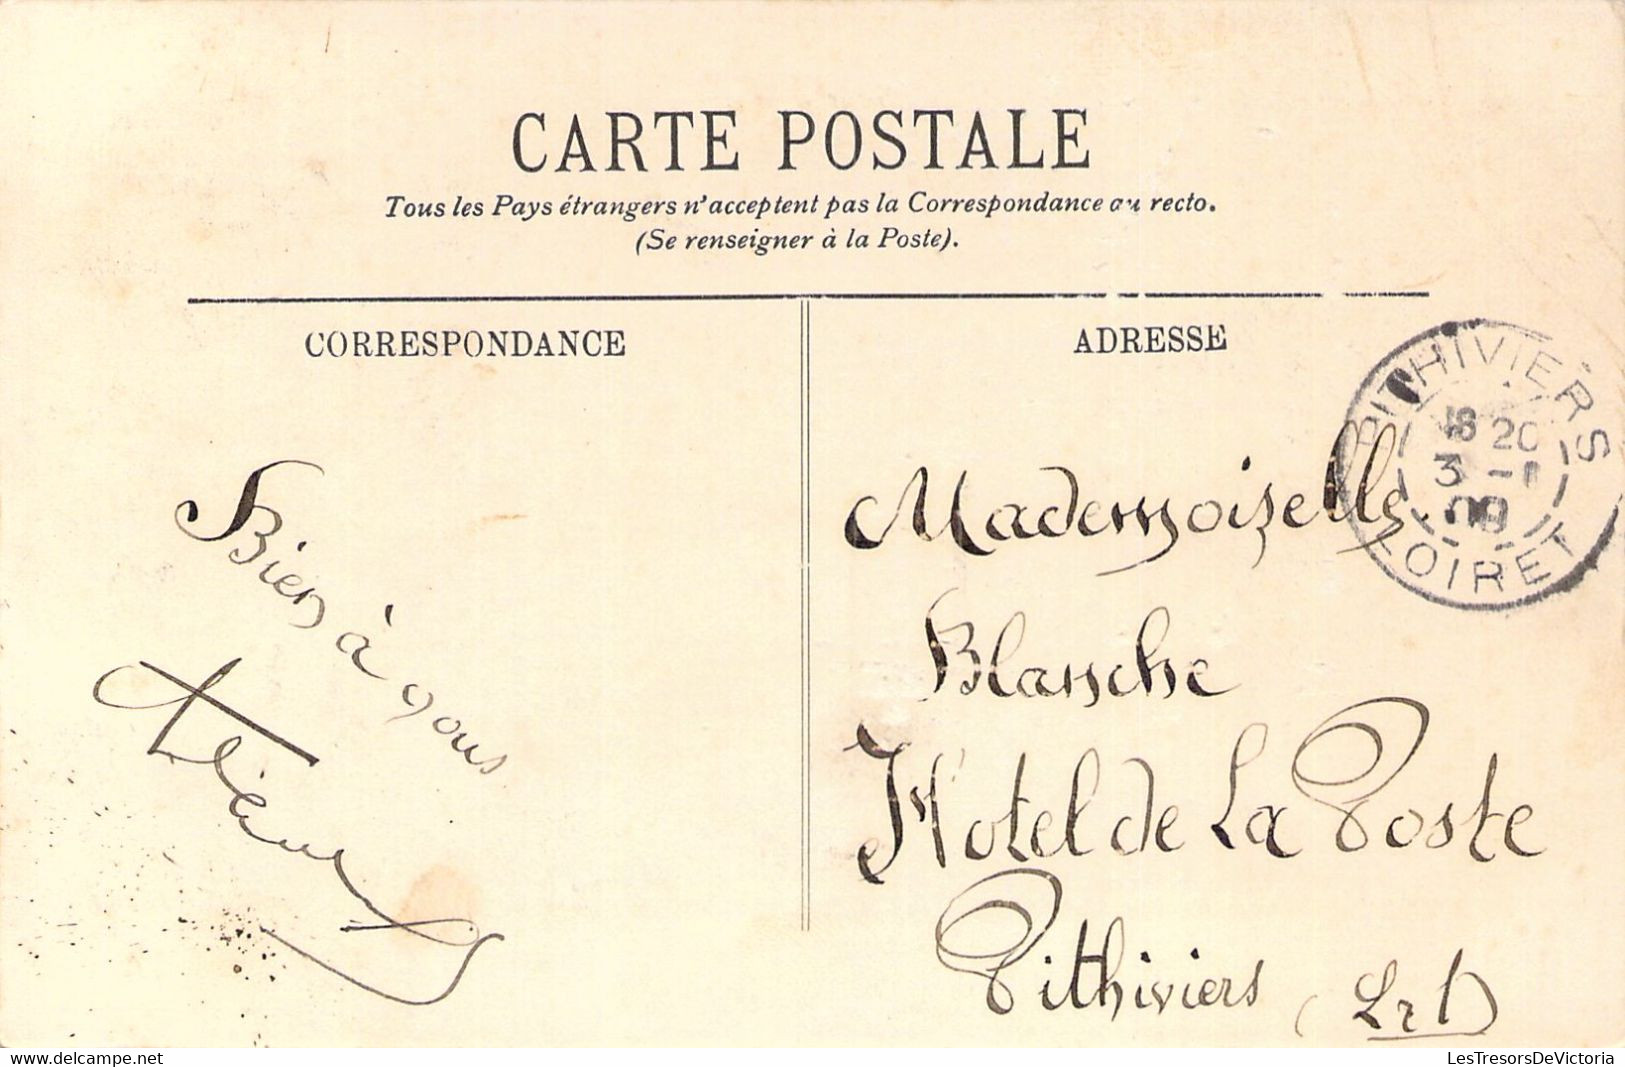 CARTE POSTALE
Tous les Pays étrangers n'acceptent pas la Correspondance au recto.
(Se renseigner à la Poste).
CORRESPONDANCE
ADRESSE
Bien à vous
PITHIVIERS
18 20
3 -1
09
LOIRET
Mademoiselle
Blanche
Hotel de La Poste
Pithiviers (Lrt)
delcampe.net
LesTresorsDeVictoria